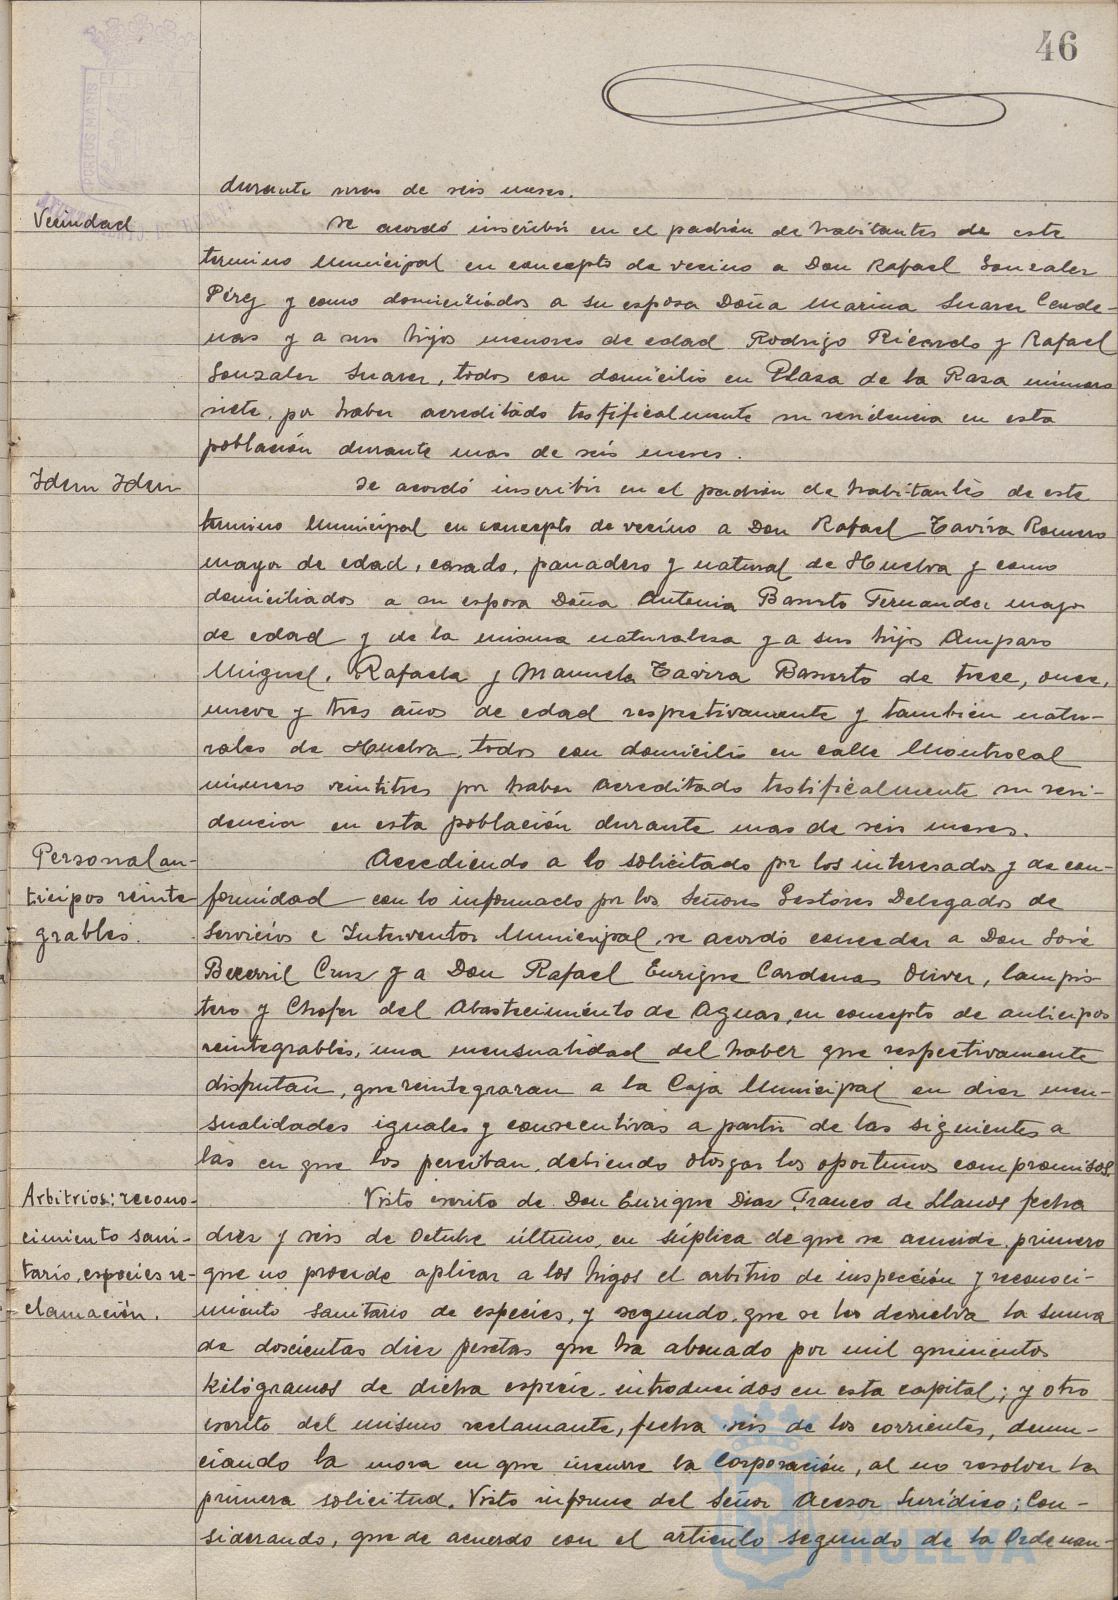 46
durante mas de seis meses.
Vecindad
Se acordó inscribir en el padrón de habitantes de este
termino Municipal en concepto de vecino a Don Rafael Gonzalez
Pérez y como domiciliados a su esposa Doña Marina Suarez Carde-
nas y a sus hijos menores de edad Rodrigo Ricardo y Rafael
Gonzalez Suarez, todos con domicilio en Plaza de la Rasa número
siete, por haber acreditado testificalmente su residencia en esta
población durante mas de seis meses.
Idem Idem
Se acordó inscribir en el padrón de habitantes de este
termino Municipal en concepto de vecino a Don Rafael Tavira Romero
mayor de edad, casado, panadero y natural de Huelva y como
domiciliados a su esposa Doña Antonia Basurto Fernandez mayor
de edad y de la misma naturaleza y a sus hijos Amparo
Miguel, Rafaela y Manuela Tavira Basurto de trece, once,
nueve y tres años de edad respectivamente y tambien natu-
rales de Huelva, todos con domicilio en calle Montrocal
número veintitres por haber acreditado testificalmente su resi-
dencia en esta población durante mas de seis meses.
Personal an-
ticipos reinte
grables.
Accediendo a lo solicitado por los interesados y de con-
formidad con lo informado por los Señores Gestores Delegados de
Servicios e Interventor Municipal, se acordó conceder a Don José
Becerril Cruz y a Don Rafael Enrique Cardenas Oliver, lampis-
tero y Chofer del Abastecimiento de Aguas, en concepto de anticipos
reintegrables, una mensualidad del haber que respectivamente
disfrutan, que reintegraran a la Caja Municipal en diez men-
sualidades iguales y consecutivas a partir de las siguientes a
las en que los perciban, debiendo otorgar los oportunos compromisos.
Arbitrios: recono-
cimiento sani-
tario, especies re-
clamación.
Visto escrito de Don Enrique Diaz Franco de Llanos fecha
diez y seis de Octubre último, en súplica de que se acuerde, primero
que no procede aplicar a los higos el arbitrio de inspección y reconoci-
miento Sanitario de especies, y segundo, que se les devuelva la suma
de doscientas diez pesetas que ha abonado por mil quinientos
Kilógramos de dicha especie introducidos en esta capital; y otro
escrito del mismo reclamante, fecha seis de los corrientes, denun-
ciando la mora en que incurre la Corporación, al no resolver la
primera solicitud. Visto informe del Señor Asesor Jurídico; Con-
siderando, que de acuerdo con el artículo segundo de la Ordenan-
HUELVA